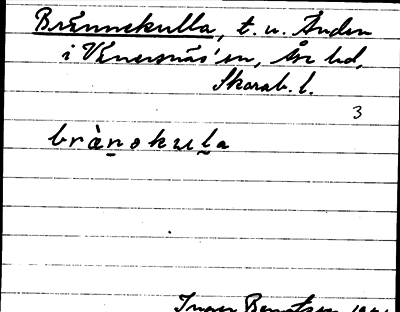 Brännekulla, t. u. Änden
i Vänersnäs' sn, Åse hd,
Skarab. l.
3
bràn̲ekul̲a
Inger Bengtsson